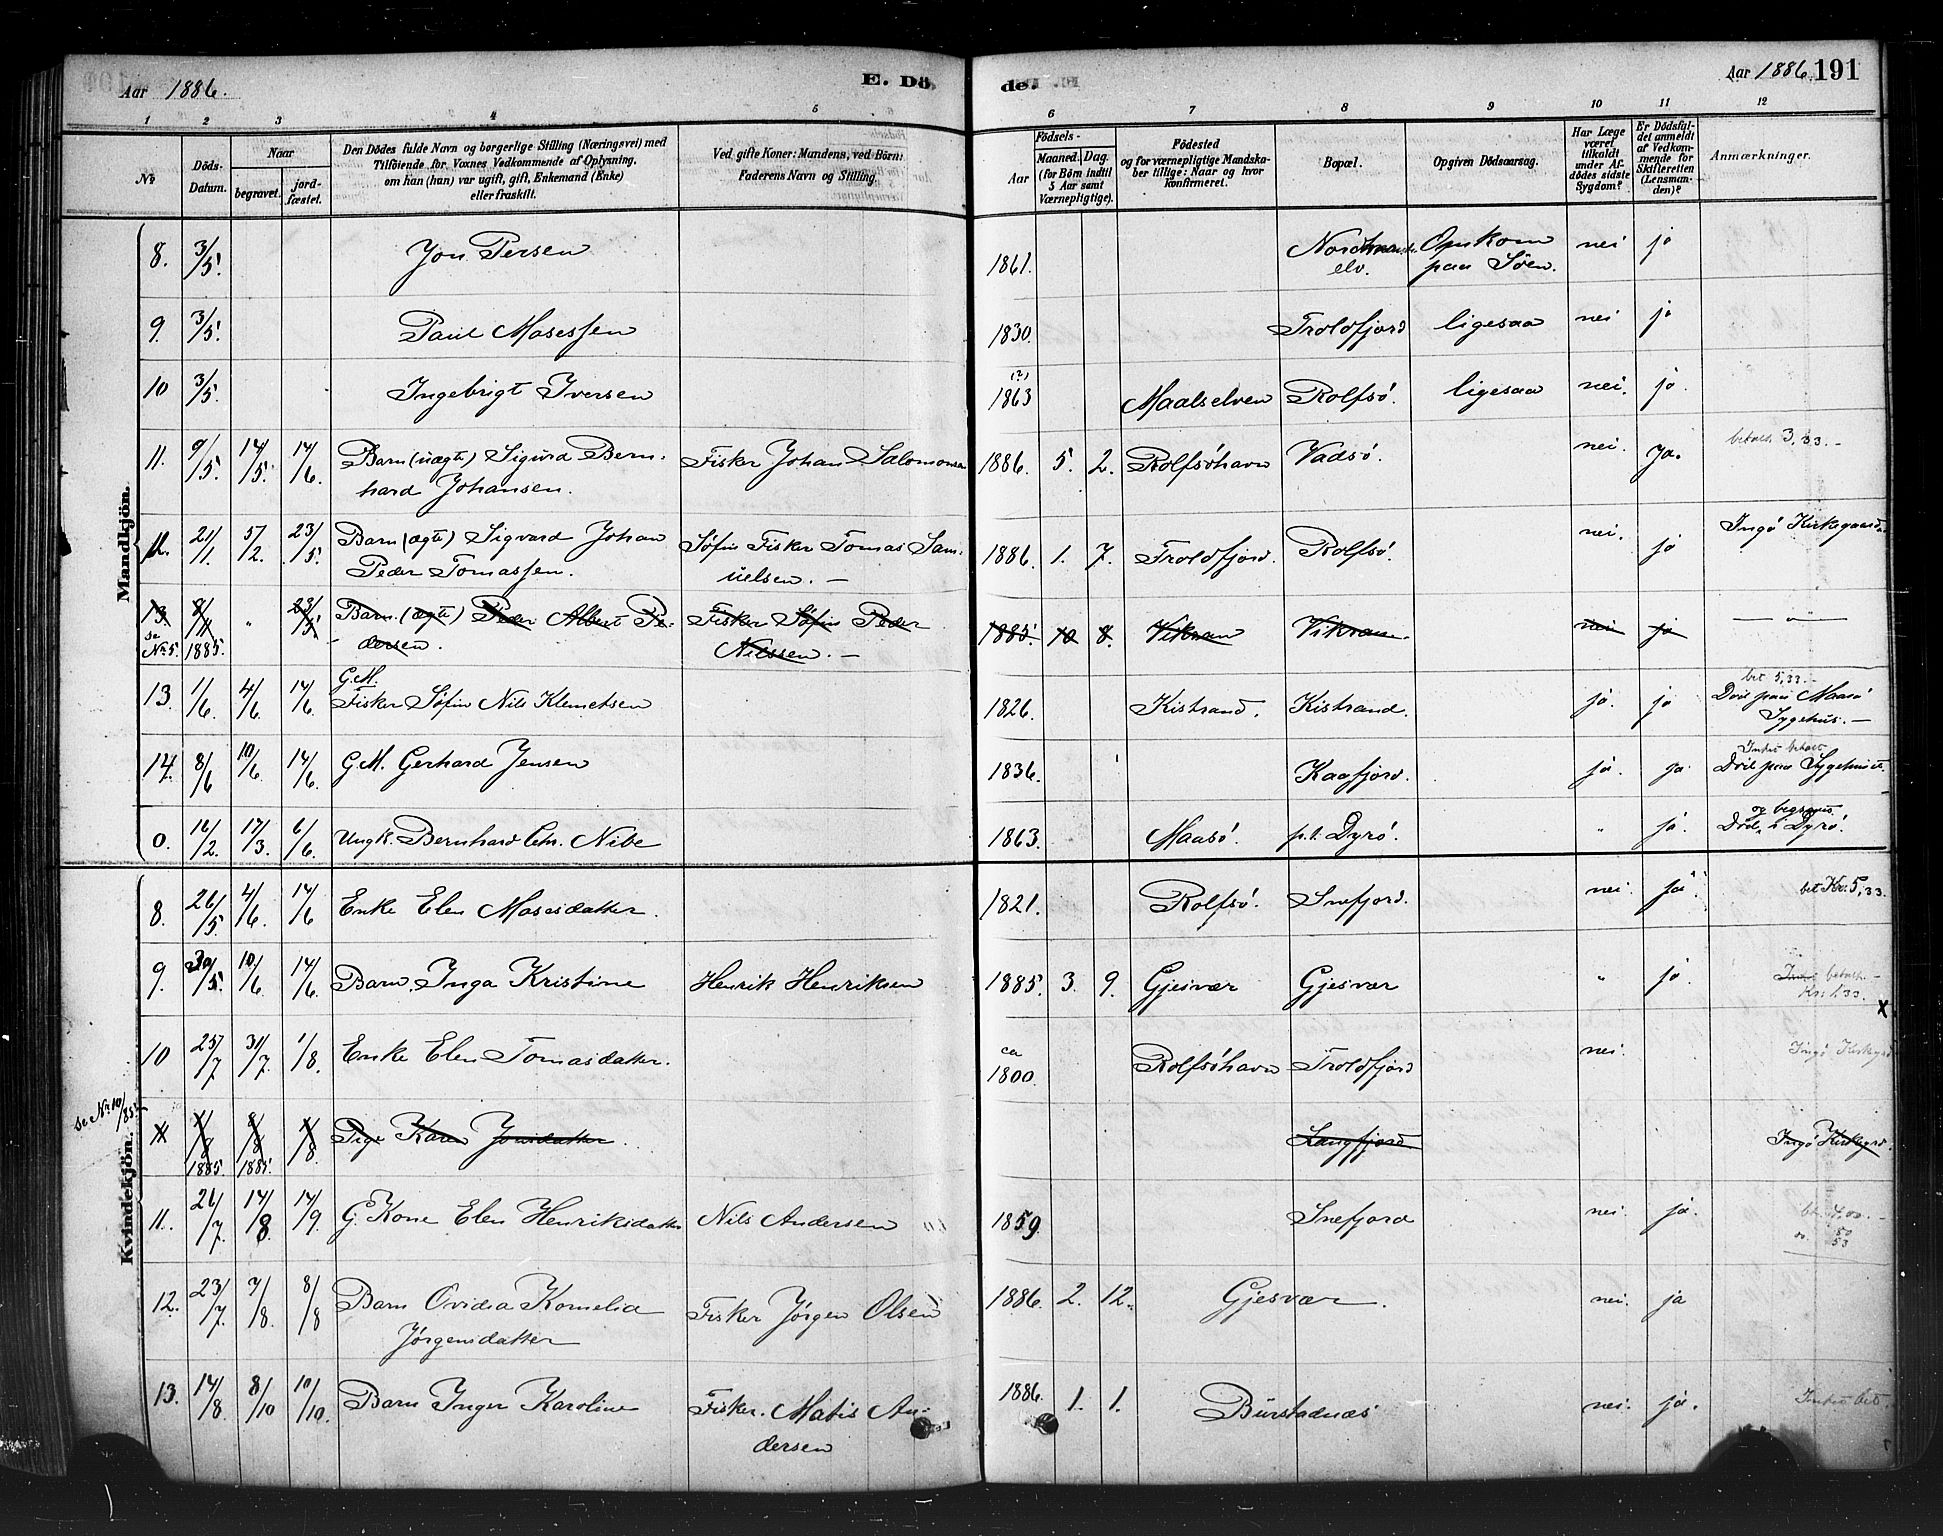 Aar 1886. E. Dö
de. Aar 1886. 191
1 2 3 4 5 6 7 8 9 10 11 12
No Döds-Datum. Naar begravet. jord-fæstet. Den Dödes fulde Navn og borgerlige Stilling (Næringsvei) med Tilföiende for Voxnes Vedkommende af Oplysning, om han (hun) var ugift, gift, Enkemand (Enke) eller fraskilt. Ved gifte Koner: Mandens, ved Börn: Faderens Navn og Stilling. Födsels- Aar Maaned. Dag. (for Börn indtil 5 Aar samt Værnepligtige). Födested og for værnepligtige Mandska-ber tillige: Naar og hvor konfirmeret. Bopæl. Opgiven Dödsaarsag. Har Læge været tilkaldt under Af-dödes sidste Sygdom? Er Dödsfal-det anmeldt af Vedkom-mende for Skifteretten (Lensman-den)? Anmærkninger.
Mandkjön.
8. 3/5. Jon Persen 1861. elv. Omkom paa Söen. nei jo
9. 3/5. Paul Mosessen 1830. Troldfjord ligesaa nei jo
10 3/5. Ingebrigt Iversen (?) 1863 Maalselven Rolfsö. ligesaa nei. jo.
11. 9/5. 14/5. 14/6. Barn (uægte) Sigurd Bern- Fisker Johan Salomonsen 1886. 5. 2. Rolfsöhavn Vadsö. nei. ja. betalt 3,33.-
hard Johansen.
12. 21/1. 5/2. 23/5. Barn (ægte) Sigvard Johan Söfin Fisker Tomas Sam- 1886. 1. 7. Troldfjord. Rolfsö. nei. jo Ingö Kirkegaard.
Peder Tomassen. uelsen. -
13 8/11 " 23/5 Barn. (ægte) Peder Albert Pe- Fisker Söfin Peder 1885. 10 8. Vikran Vikran. nei jo — " —
se No 5. 1885. dersen. Nilssen. -
13. 1/6 4/6 14/6. G.M. Fisker Söfin Nils Klemetsen 1826. Kistrand. Kistrand. jo. jo bet 5,33.- Död paa Maasö Sygehus.-
14. 8/6 10/6. 14/6. G.M. Gerhard Jensen 1836. Kaafjord. jo. ja Inkö betalt Död paa Sygehuset.
0. 16/2. 17/3. 6/6. Ungk. Bernhard Chr. Nibe 1863. Maasö. p.t. Dyrö. " jo. og begravet Död i Dyrö.
Kvindekjön.
8. 26/5. 4/6. 14/6 Enke Elen Mosesdatter. 1821. Rolfsö. Snefjord. nei. ja bet Kr. 5,33.
9. 30/5. 10/6. 14/6. Barn. Inga Kristine Henrik Henriksen 1885. 3. 9. Gjesvær Gjesvær " jo. betalt - Kr. 1.33. x
10 25/7 31/7. 1/8. Enke Elen Tomasdatter. ca 1800. Rolfsöhavn Troldfjord nei. Ingö Kirkegrd
se No 10/85. 1/8 1885. 8/8 1885. 1/8. Pige Karen Jonsdatter. Langfjord Ingö Kirkegrd.
11. 26/7. 14/8. 14/9. G. Kone Elen Henriksdatter Nils Andersen 1859. Snefjord nei. jo. bet. 4,00.-
12. 23/7. 3/8. 8/8 Barn Ovidia Kornelia Fisker Jörgen Olsen 1886. 2. 12. Gjesvær. nei. ja
Jörgensdatter
13. 14/8. 8/10 10/10. Barn Inger Karoline Fisker. Matis An- 1886. 1. 1. Burstadnæs nei. jo. Inkö bet
dersen